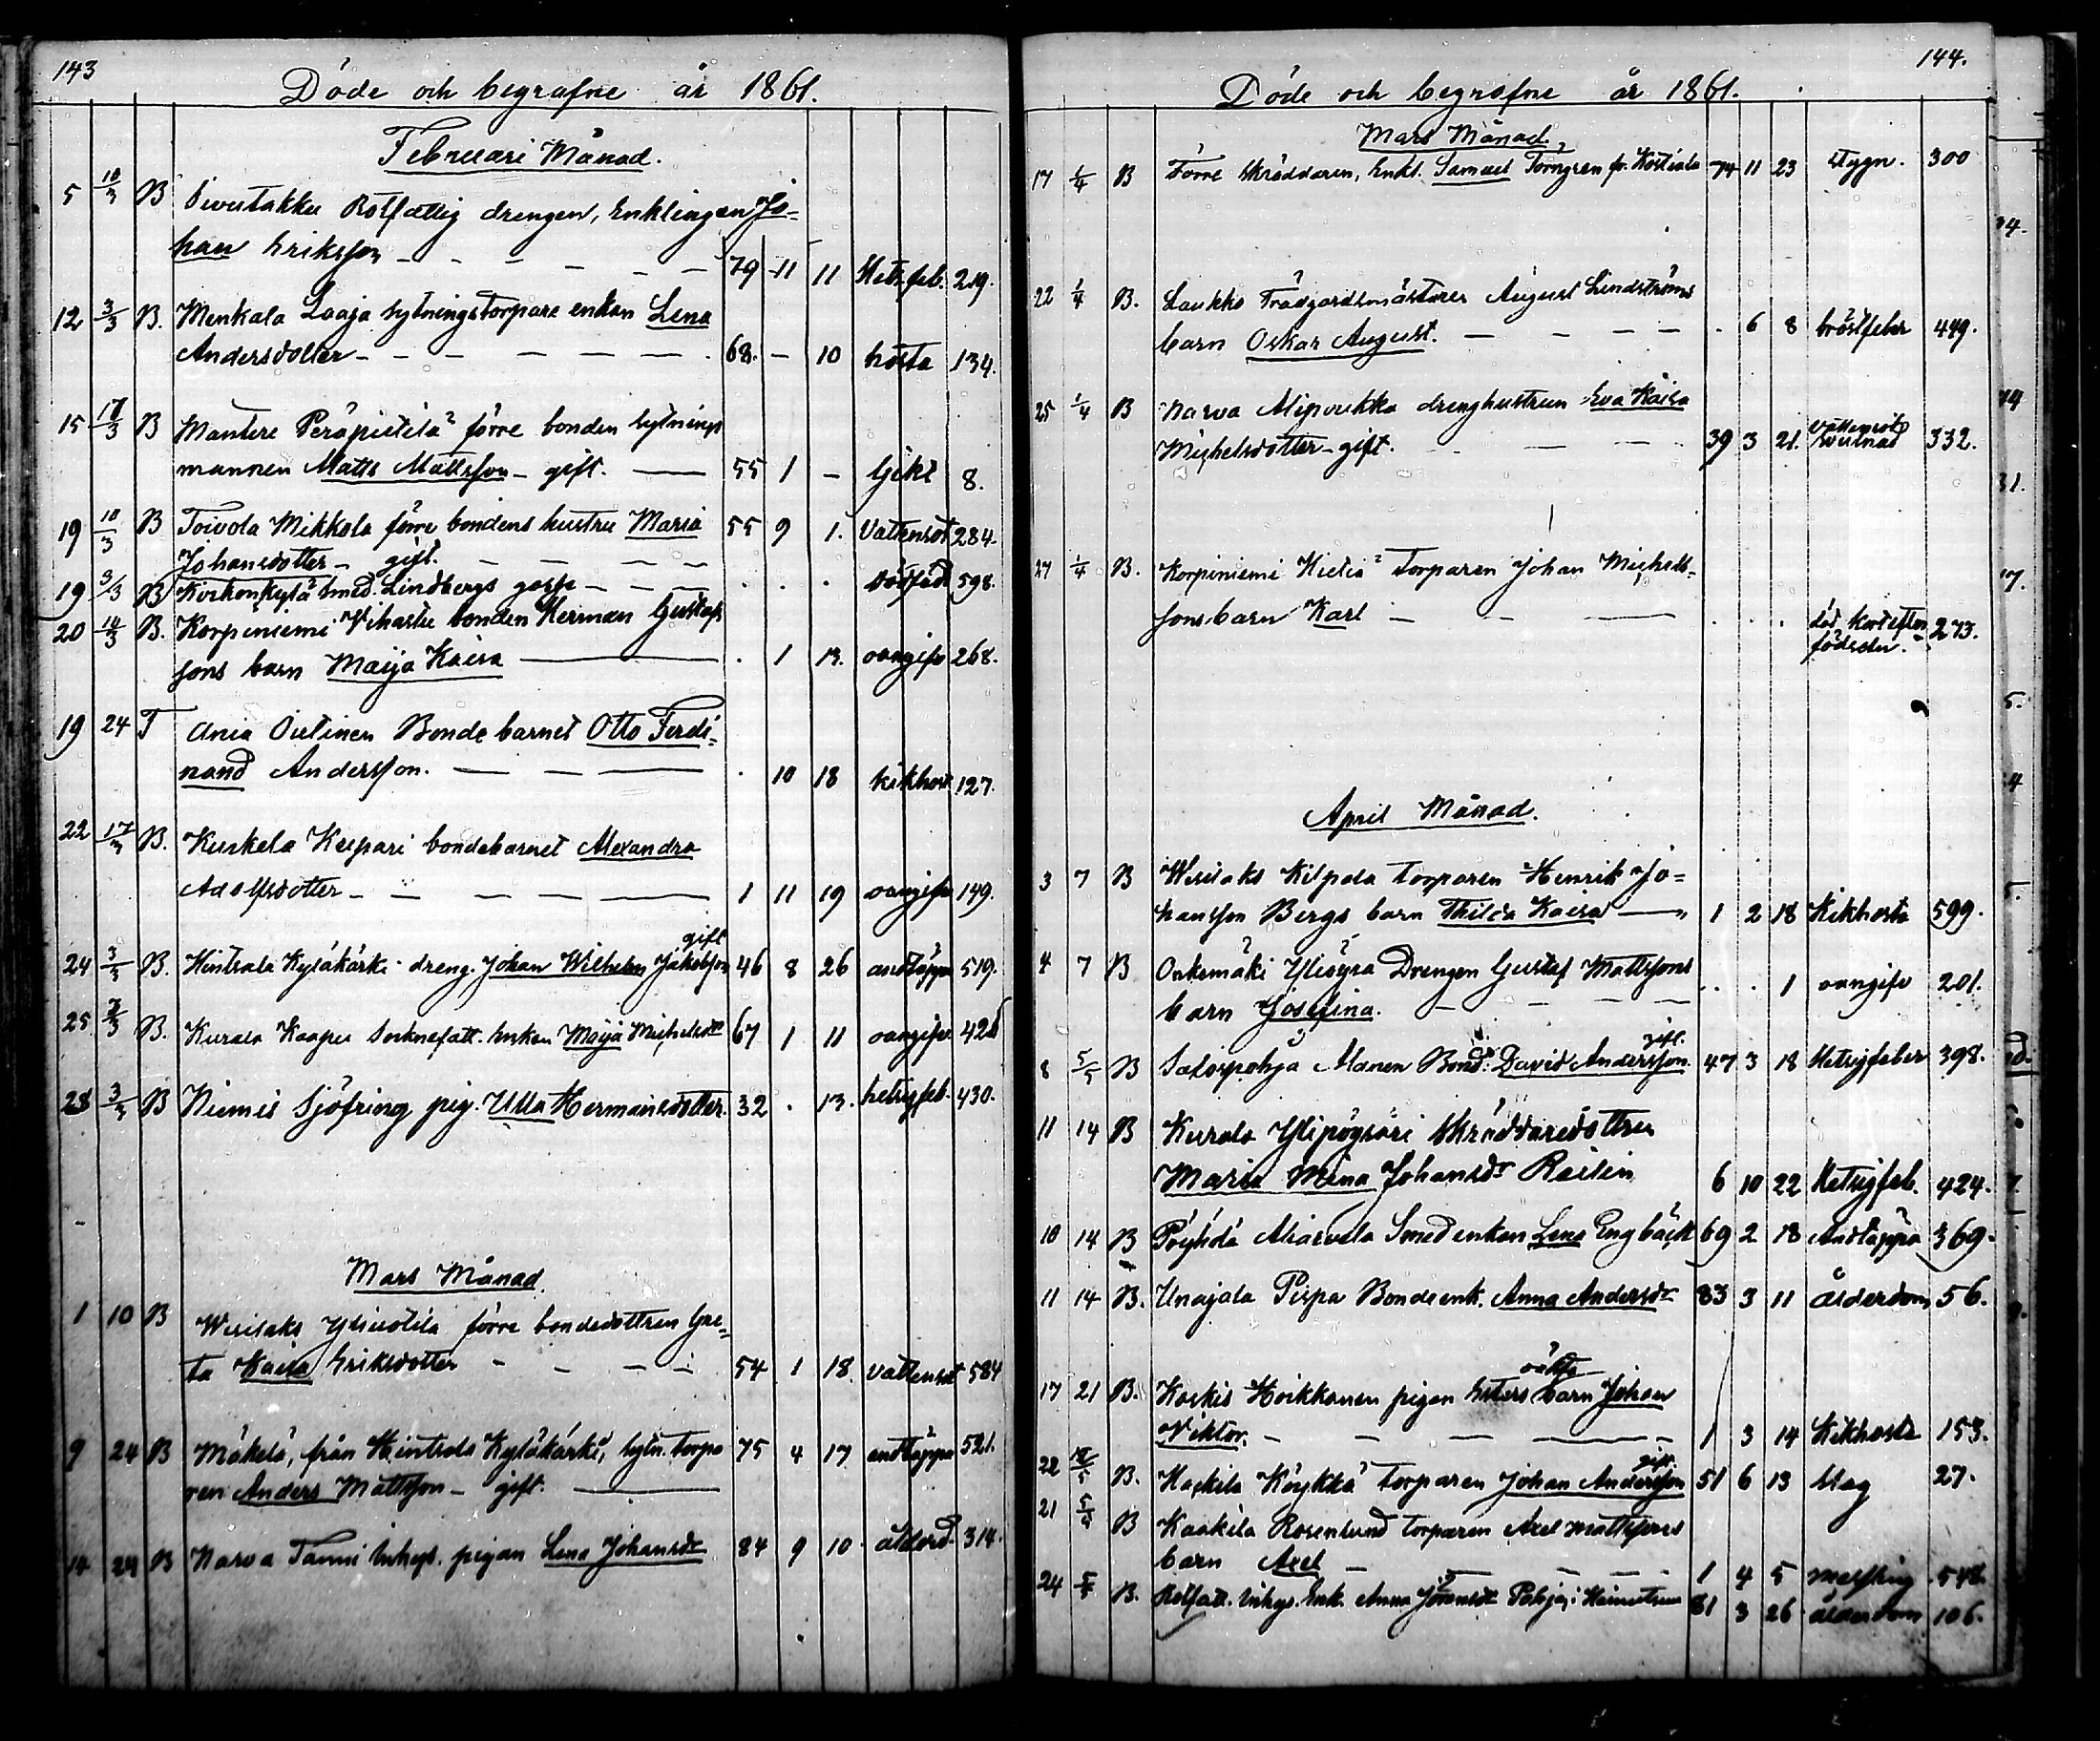 143
Döde och begrafne år 1861.
Februari Månad.
5 10/3 B Rotfattig drengen, Enklingen Jo=
han Eriksson 79 11 11 Hets.feb. 219.
12 3/3 B. Menkala Laaja sytningstorpare enkan Lena
Andersdotter 68. - 10 hosta 134.
15 17/3 B Mantere Peräpietilä förre bonden sytnings
mannen Matts Mattsson - gift. 55 1 - Gikt 8.
19 10/3 B Toivola Mikkola förre bondens hustru Maria 55 9 1. Vattensot 284.
Johansdotter - gift.
19 3/3 B Kirkonkylä smed. Lindbergs gosse dödföd 598.
20 10/3 B. Korpiniemi Vihastu bonden Herman Gustafs
sons barn Maija Kaisa . 1 13. oangifv 268.
19 24 T Ania Outinen Bonde barnet Otto Ferdi=
nand Andersson. . 10 18 kikhost 127.
22 17/3 B. Kuskela Keipari bondebarnet Alexandra
Adolfsdotter 1 11 19 oangifv 149.
gift
24 3/3 B. Hintsala Kyläkärki dreng. Johan Wilhelm Jakobsson 46 8 26 andtäppa 519.
25 3/3 B. Kurala Kaapu Socknefatt. Enkan Maija Michelsdr 67 1 11 oangifv.
28 3/3 B Niemis Sjöfring pig. Ulla Hermansdotter. 32 . 13. hetsigfeb. 430.
Mars Månad.
1 10 B Wesilaks förre bondedottren Gre=
ta Kaisa Eriksdotter 54 1 18. vattensot 584
9 24 B Mäkelä, från Hintsala Kyläkärki, sytn. torpa 75 4 17 andtäppa 521.
ren Anders Mattsson - gift.
14 24 B Narva Tanni Inhys. pigan Lena Johansdr 84 9 10. ålderd. 314.
144.
Döde och begrafne år 1861.
Mars Månad.
17 1/4 B Förre skräddaren, Enkl. Samuel Törngren fr. Kostiala 74 11 23 stygn. 300
22 1/4 B. Laukko Trädgårdsmästares August Lindströms
barn Oskar August. . 6 8 bröstfeber 449.
25 1/4 B Narva Alipoukka drenghustrun Eva Kaisa
Michelsdotter - gift. 39 3 21. vattensot 332.
27 1/4 B. Korpiniemi Hietia torparen Johan Michels=
sons barn Karl . . . död kort efter 273.
födseln.
April Månad.
3 7 B Wesilaks Kilpala torparen Henrik Jo=
hansson Bergs barn Thilda Kaisa 1 2 18 Kikhosta 599.
4 7 B Onkemäki Yliöyrä Drengen Gustaf Mattssons
barn Josefina. . . 1 oangifv 201.
gift.
8 5/5 B Satospohja Alanen Bond: David Andersson. 47 3 18 Hetsigfeber 398.
11 14 B Kurala Ylipöysäri skräddaredottren
Maria Mina Johansdr Reilin 6 10 22 Hetsigfeb. 424.
10 14 B Pöyhölä Smed enkan Lena Engbäck 69 2 18 Andtäppa 369.
11 14 B. Unajala Pispa Bonde enk. Anna Andersdr 83 3 11 ålderdom 56.
oäkta
17 21 B. Koskis Hoikkanen pigan Esters barn Johan
Viktor. 1 3 14 Kikhosta 153.
gift.
22 B. Kackila Köykkä torparen Johan Andersson 51 6 13 slag 27.
21 B Kaakila Rosenlund torparen Axel Mattssons
barn Axel 1 4 5 messling 548.
24 B. Rotfatt. Inhys. Enk. Anna 81 3 26 ålderdom 106.